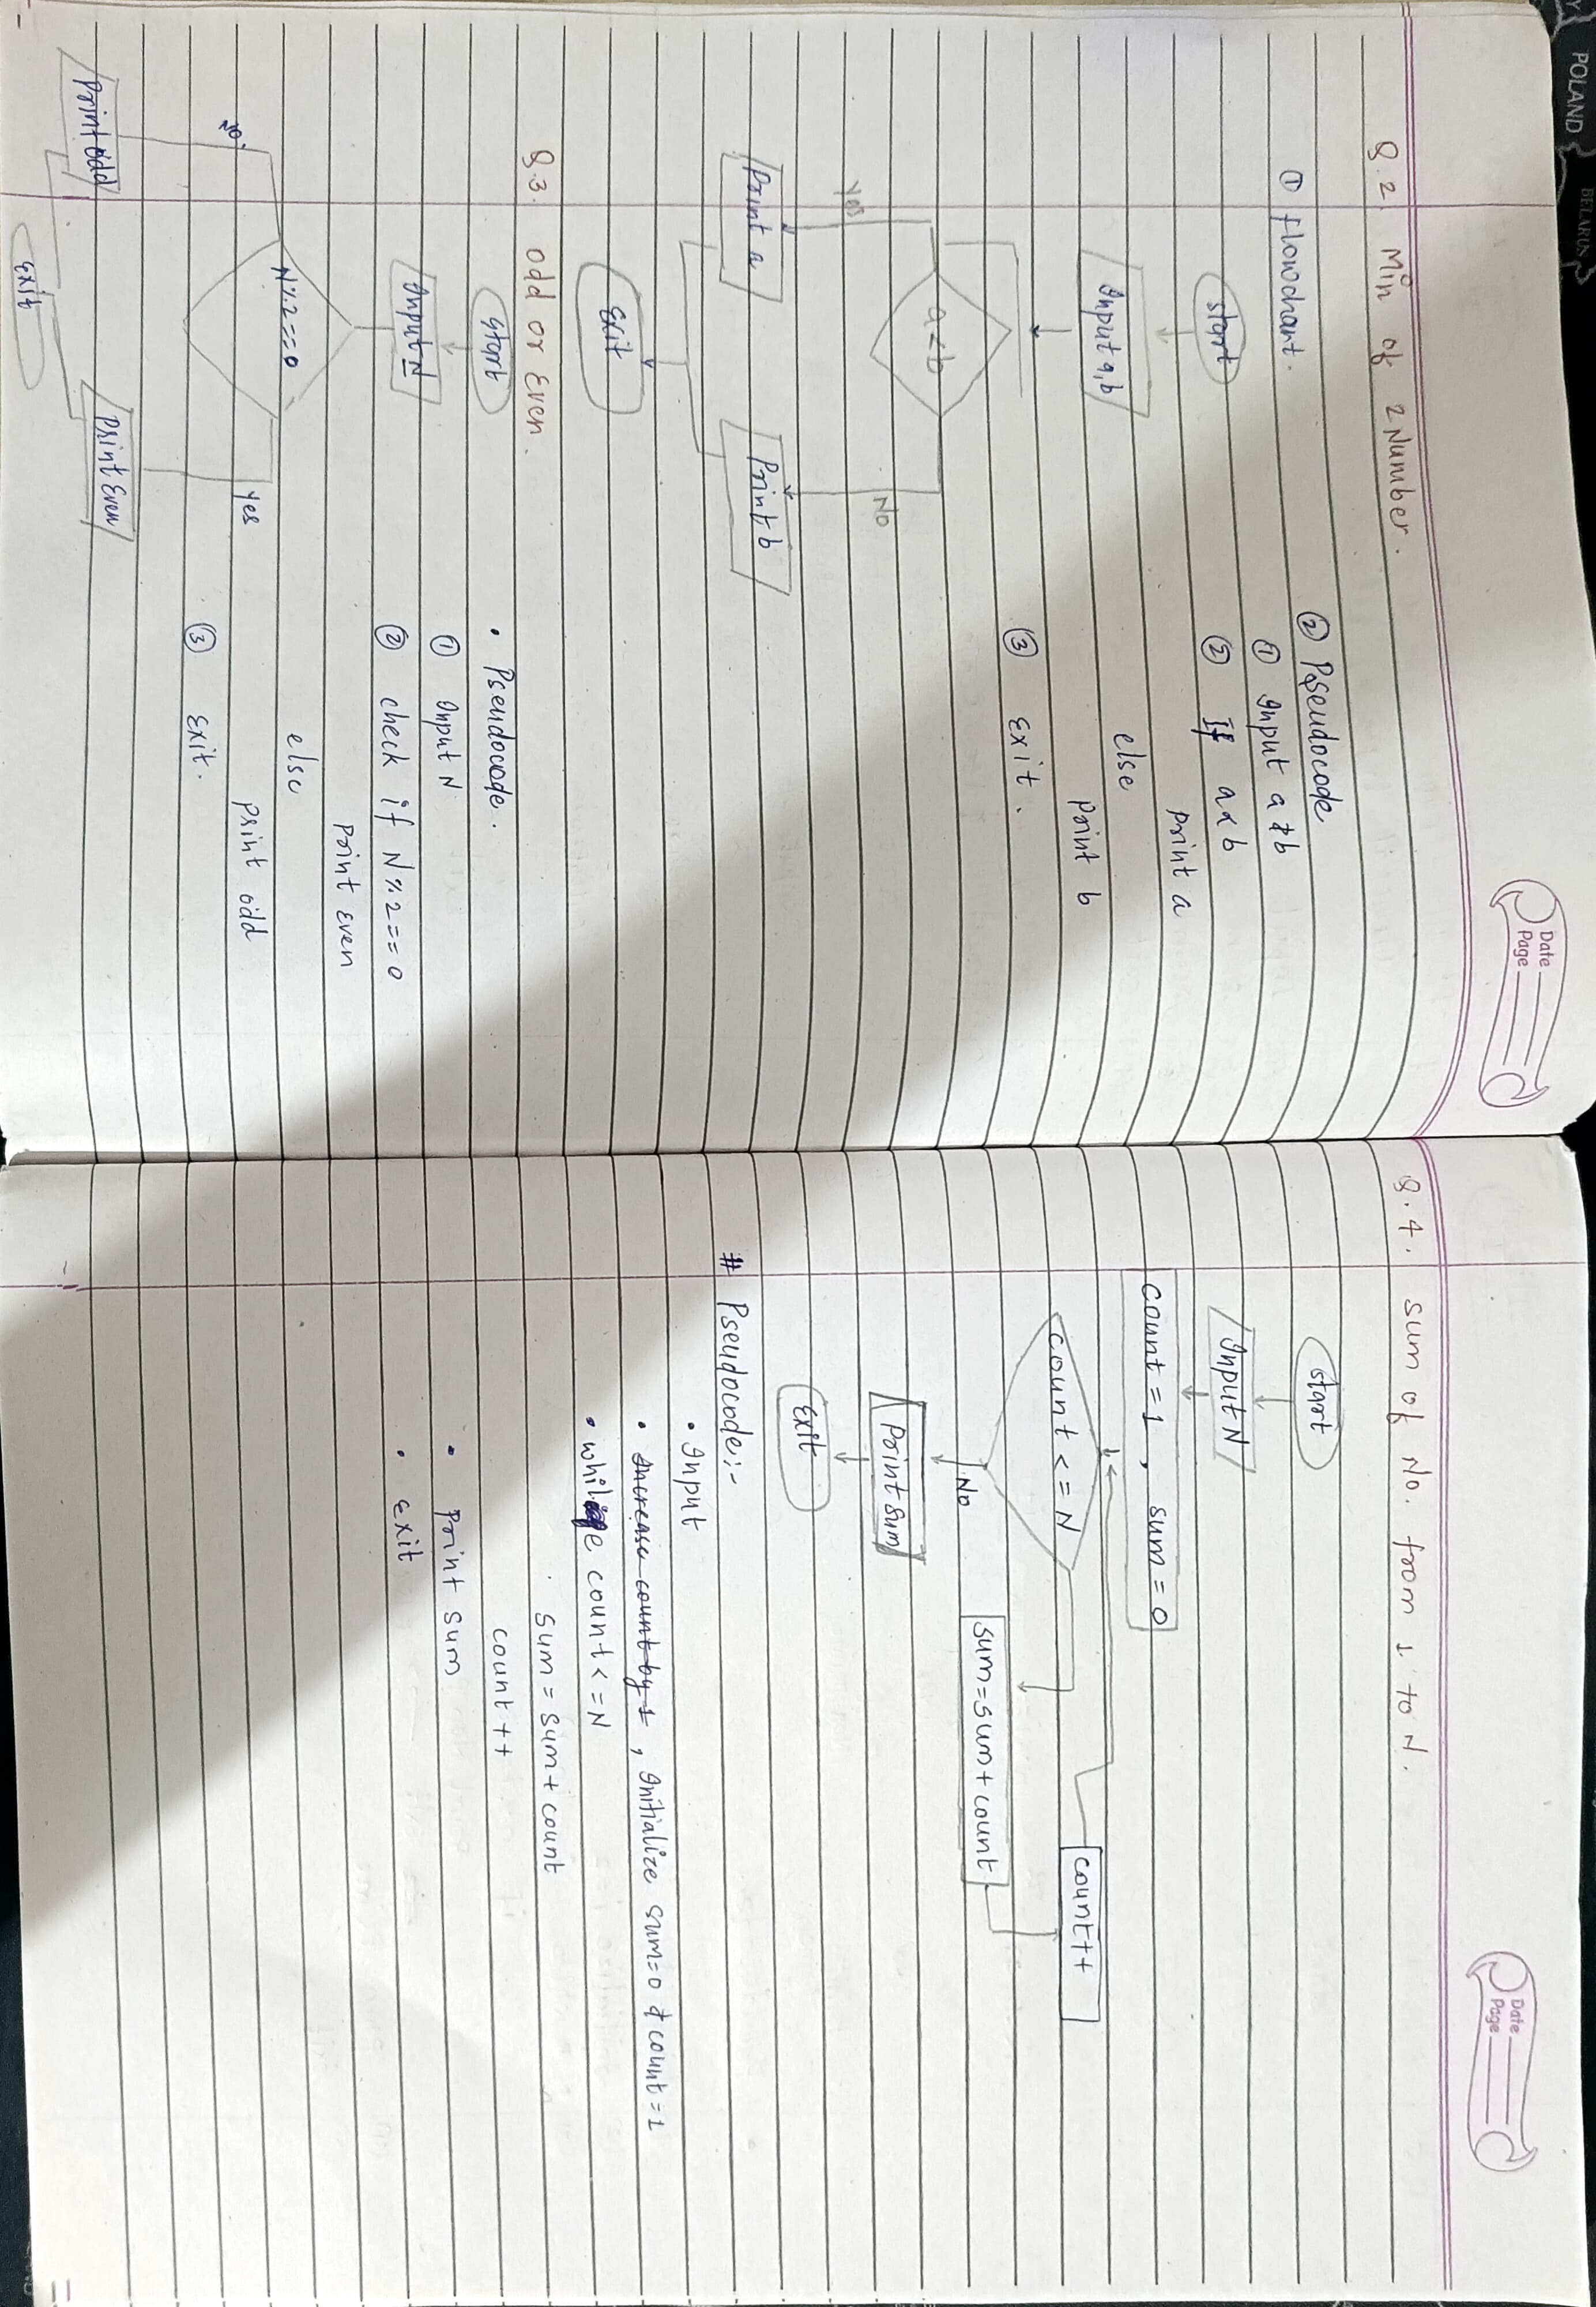 POLAND
BELARUS
Date
Page
Q.2. Min of 2 Number.
① flowchart.
start
Input a,b
a<b
Yes
No
Print a
Print b
Exit
② Pseudocode
① Input a & b
② If a<b
print a
else
print b
③ Exit.
Q.3. odd or Even.
start
Input N
N%2==0
No.
yes
Print odd
Print Even
Exit
• Pseudocode.
① Input N
② check if N%2==0
print even
else
print odd
③ Exit.
Date
Page
Q.4. sum of No. from 1 to N.
start
Input N
count = 1, sum = 0
count <= N
No
Print sum
Exit
sum=sum+count
count++
# Pseudocode:-
• Input
• Increase count by 1, Initialize sum=0 & count=1
• while count <= N
sum = sum + count
count ++
• Print sum
• Exit